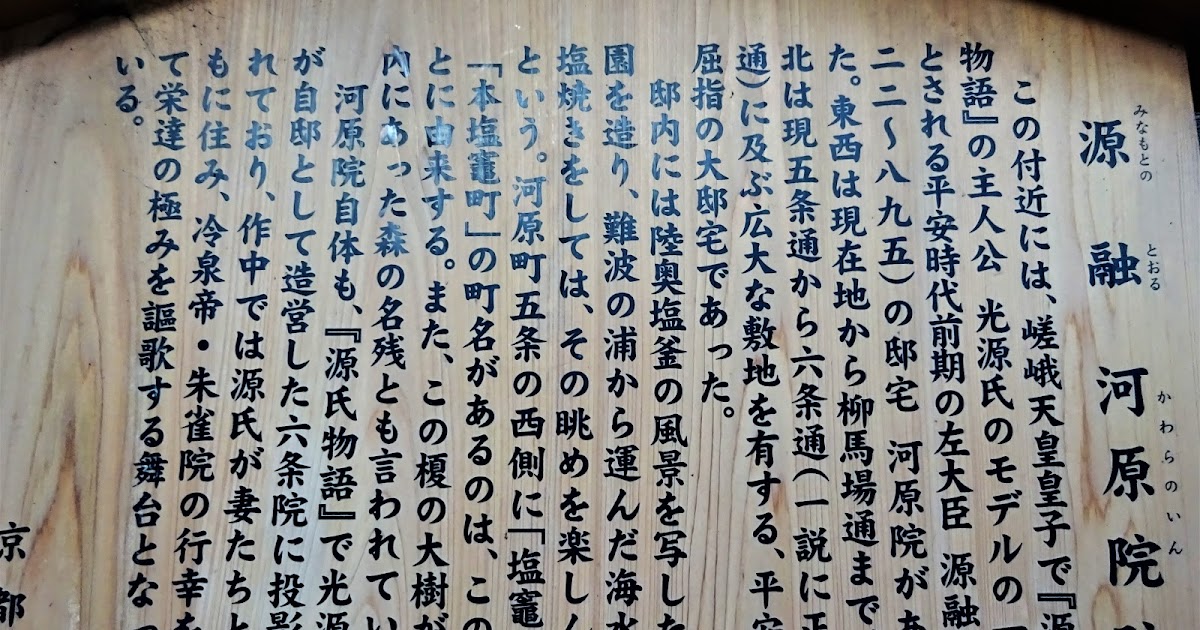 源融河原院
みなもとの とおる かわらのいん
この付近には、嵯峨天皇皇子で『源
物語』の主人公 光源氏のモデルの
とされる平安時代前期の左大臣 源融
二二〜八九五)の邸宅 河原院があ
た。東西は現在地から柳馬場通まで
北は現五条通から六条通(一説に正
通)に及ぶ広大な敷地を有する、平安
屈指の大邸宅であった。
邸内には陸奥塩釜の風景を写した
園を造り、難波の浦から運んだ海水
塩焼きをしては、その眺めを楽しん
という。河原町五条の西側に「塩竈
「本塩竈町」の町名があるのは、この
とに由来する。また、この榎の大樹が
内にあった森の名残とも言われてい
河原院自体も、『源氏物語』で光源
が自邸として造営した六条院に投影
れており、作中では源氏が妻たちと
もに住み、冷泉帝・朱雀院の行幸を
て栄達の極みを謳歌する舞台となっ
いる。
京都